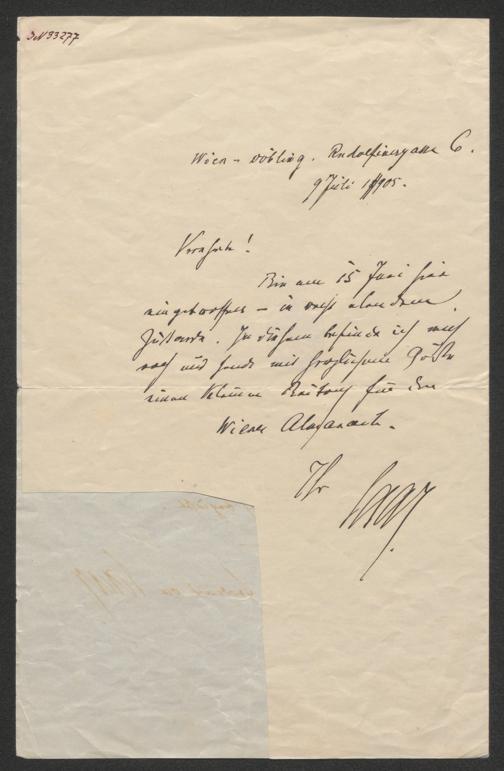 JN 93277
Wien – Döbling. Rudolfinergasse 6.
9 Juli 1905.
Verehrte!
Bin am 15 Juni hier
eingetroffen – in recht elendem
Zustande. In diesem befinde ich mich
noch und sende mit herzlichem Gruße
einen kleinen Beitrag für den
Wiener Almanach.
Ihr Saar